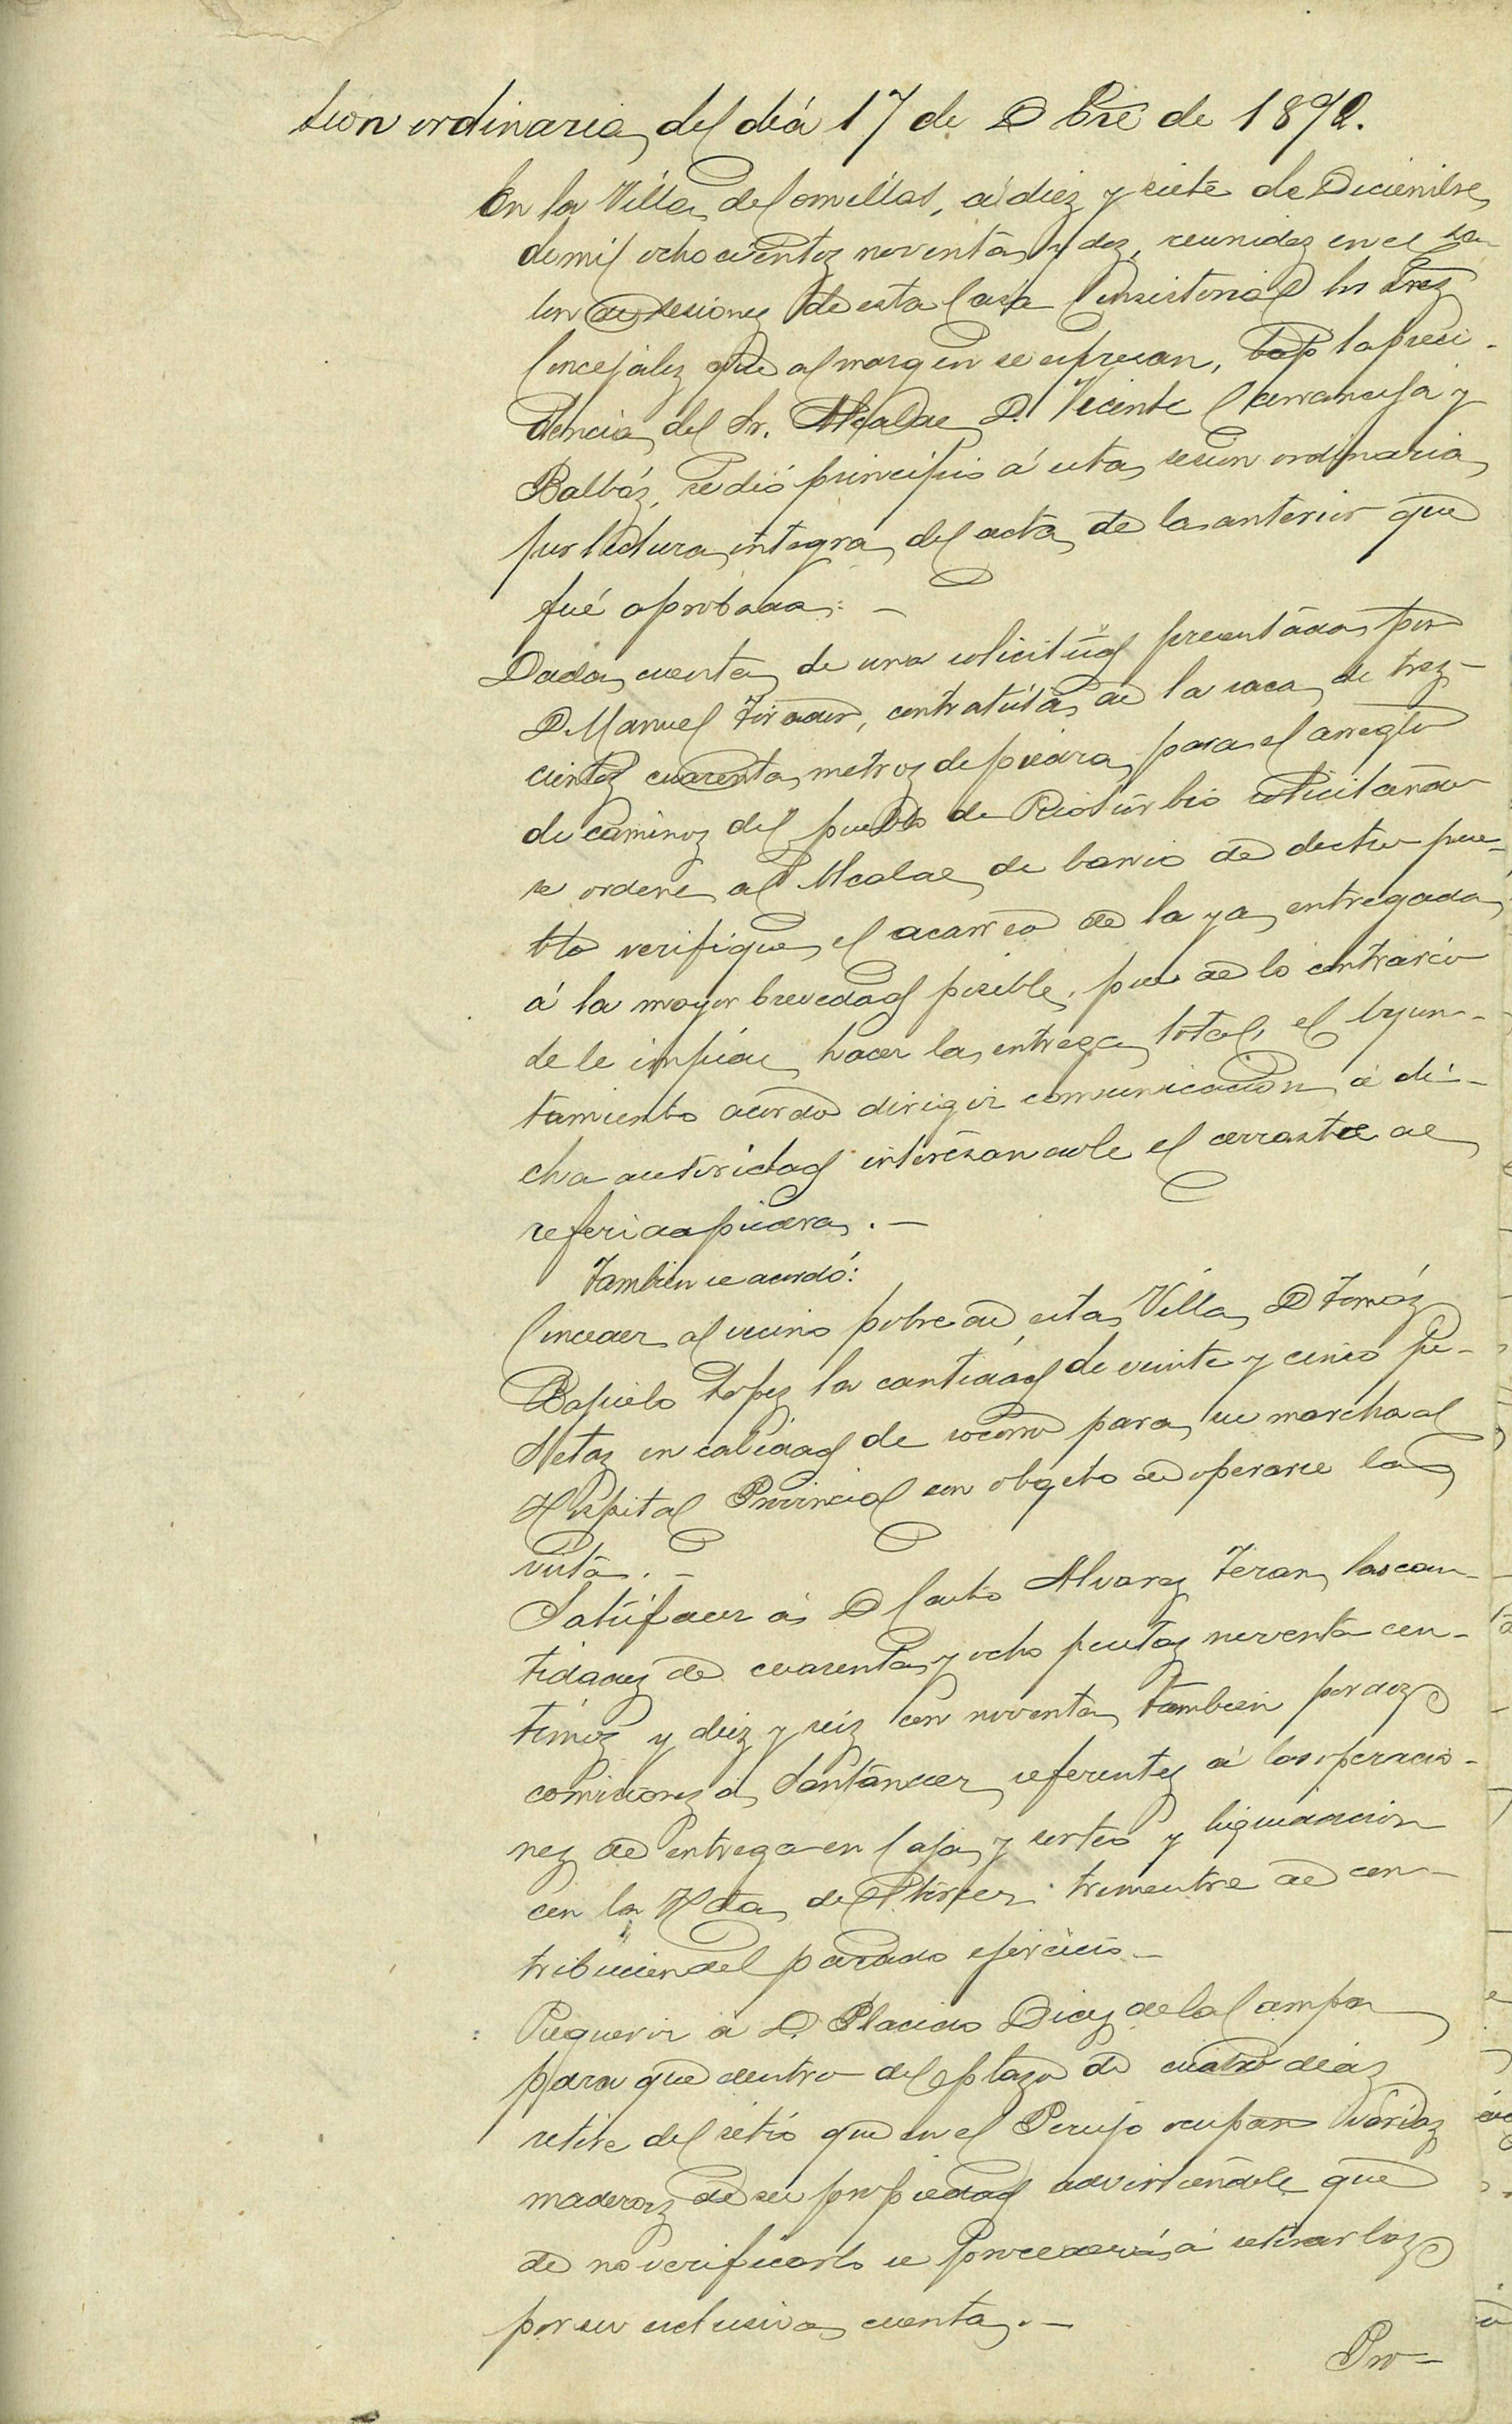 sion ordinaria del dia 17 de Dbre de 1892.
En la Villa de Comillas, á diez y siete de Diciembre
de mil ochocientos noventa y dos, reunidos en el sa-
lon de sesiones de esta Casa Consistorial los Sres
Concejales que al margen se espresan, bajo la presi-
dencia del Sr. Alcalde D. Vicente Carranceja y
Balbás, se dió principio á esta sesion ordinaria
por lectura integra del acta de la anterior que
fué aprobada: -
Dada cuenta de una solicitud presentada por
D Manuel Tirador, contratista de la saca de tres-
cientos cuarenta metros de piedra para el arreglo
de caminos del pueblo de Rioturbio solicitando
se ordene al Alcalde de barrio de dicho pue-
blo verifique el acarreo de la ya entregada
á la mayor brevedad posible, pues de lo contrario
se le impide hacer la entrega total, el Ayun-
tamiento acordó dirigir comunicacion á di-
cha autoridad interesandole el arrastre de
referida piedra. -
Tambien se acordó:
Conceder al vecino pobre de esta Villa D Tomás
Lopez la cantidad de veinte y cinco pe-
setas en calidad de socorro para su marcha al
Hospital Provincial con objeto de operarse la
vista. -
Satisfacer á D Casto Alvarez Teran las can-
tidades de cuarenta y ocho pesetas noventa cen-
timos y diez y seis con noventa tambien por dos
comisiones á Santander referentes á las operacio-
nes de entrega en Caja y sorteo y liquidacion
con la Hda del tercer trimestre de con-
tribucion del pasado ejercicio -
Requerir á D. Placido Diez de la Campa
para que dentro del plazo de cuatro dias
retire del sitio que en el Perujo ocupan varias
maderas de su propiedad advirtiendole que
de no verificarlo se procederá á retirarlas
por su esclusiva cuenta. -
Pro-